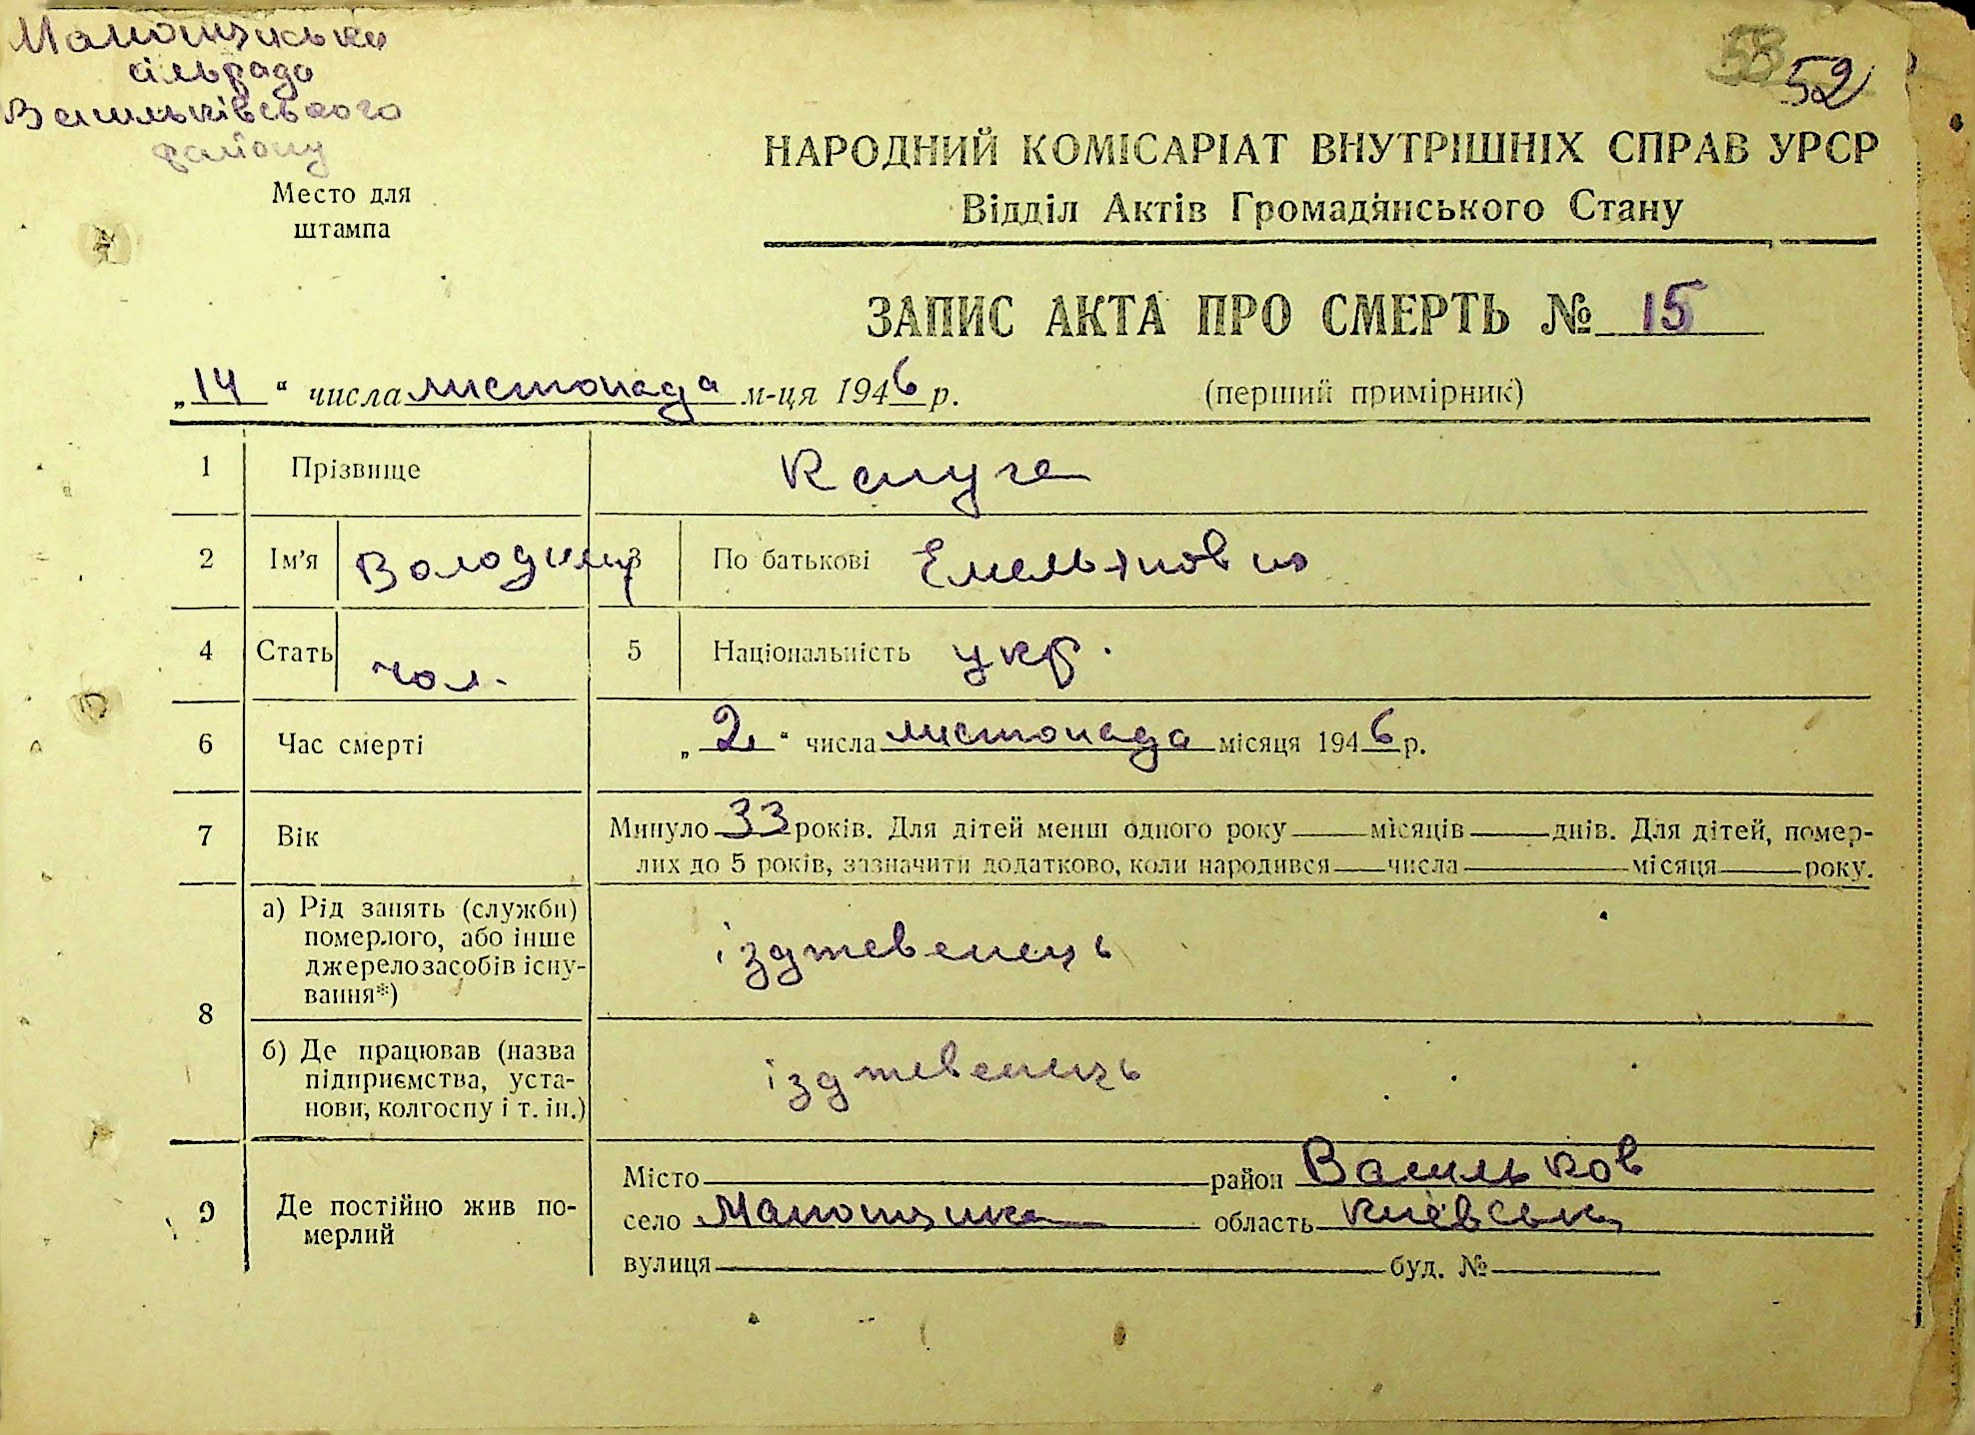 53 52
сільрада
Васильківського
району
Место для
штампа
НАРОДНИЙ КОМІСАРІАТ ВНУТРІШНІХ СПРАВ УРСР
Відділ Актів Громадянського Стану
ЗАПИС АКТА ПРО СМЕРТЬ № 15
„14“ числа листопада м-ця 1946 р. (перший примірник)
1 Прізвище Калуга
2 Ім'я Володимир 3 По батькові Емельянович
4 Стать чол. 5 Національність укр.
6 Час смерті „2“ числа листопада місяця 1946 р.
7 Вік Минуло 33 років. Для дітей менш одного року місяців днів. Для дітей, помер-
лих до 5 років, зазначити додатково, коли народився числа місяця року.
8 а) Рід занять (служби)
померлого, або інше
джерело засобів існу-
вання*)
іздтевенець
б) Де працював (назва
підприємства, уста-
нови, колгоспу і т. ін.)
іздтевенець
9 Де постійно жив по-
мерлий
Місто район Васильков
село область Київськ
вулиця буд. №